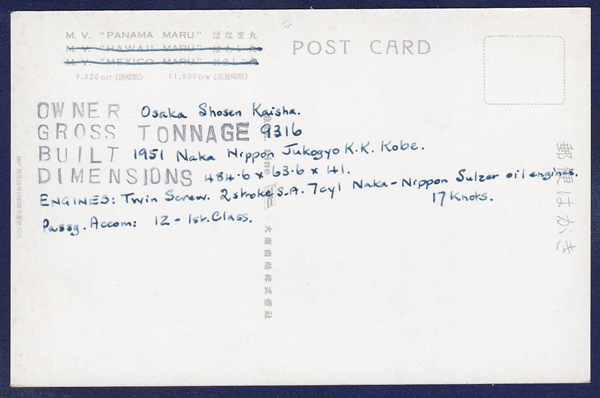 M. V. "PANAMA MARU" ぱなま丸
M. V. "HAWAII MARU" はわい丸
M. V. "MEXICO MARU" めきしこ丸
9,320 G/T (総噸数) 11,030 D/W (重量噸数)
POST CARD
OWNER Osaka Shosen Kaisha.
GROSS TONNAGE 9316
BUILT 1951 Naka Nippon Jukogyo K.K. Kobe.
DIMENSIONS 484.6 x 63.6 x 41.
ENGINES: Twin Screw. 2 stroke S.A. 7cyl Naka-Nippon Sulzer oil engines.
17 Knots.
Passg. Accom: 12 - 1st. Class.
大阪商船株式会社
郵便はがき